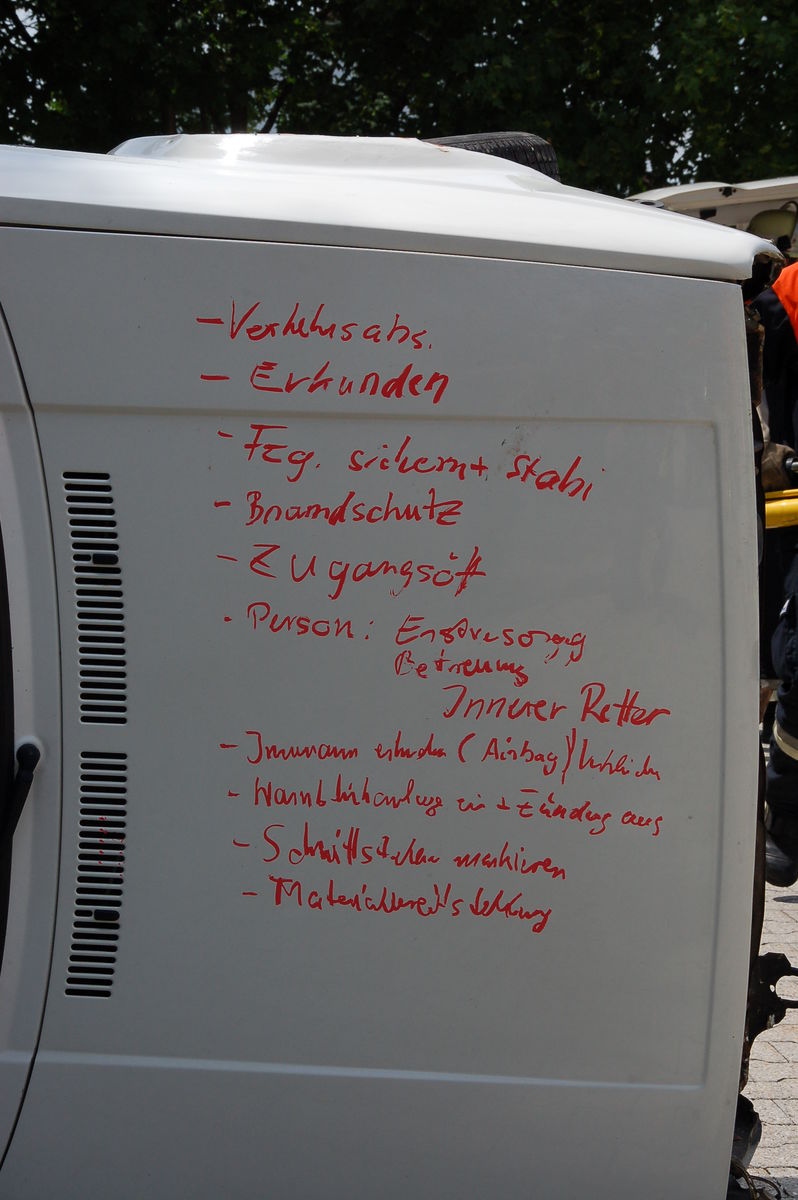 - Verkehrsabs.
- Erkunden
- Fzg. sichern + Stabi
- Brandschutz
- Zugangsöff
- Person: Erstversorgg
Betreuung
Innerer Retter
- Innenraum erkunden (Airbag)
- Warnblinkanlage ein + Zündung aus
- Schnittstellen markieren
- Materialbereitstellung